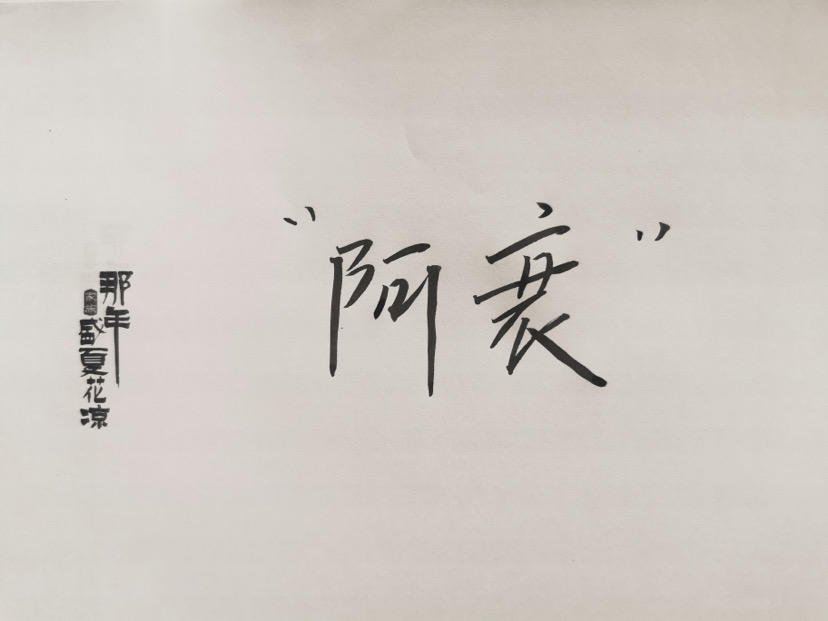 “阿衰”
那年
盛夏花凉